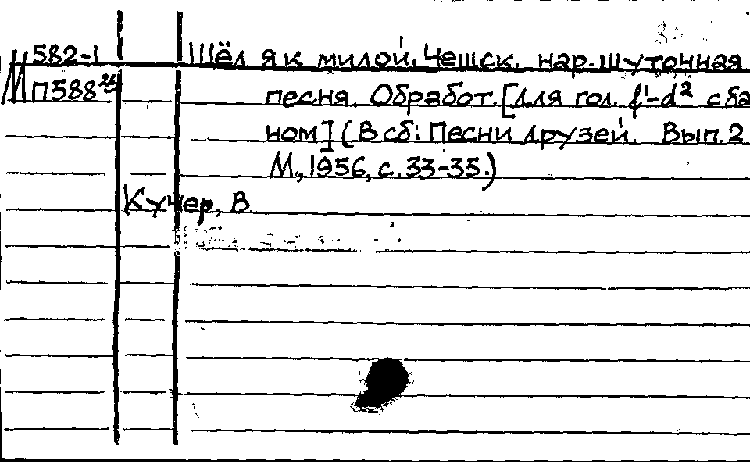 582-1 Шёл я к милой. Чешск. нар. шуточная
М П588 песня. Обработ. [для гол. f¹-d² с ба
ном] (В сб: Песни друзей. Вып. 2
М., 1956, с. 33-35.)
Кучер, В